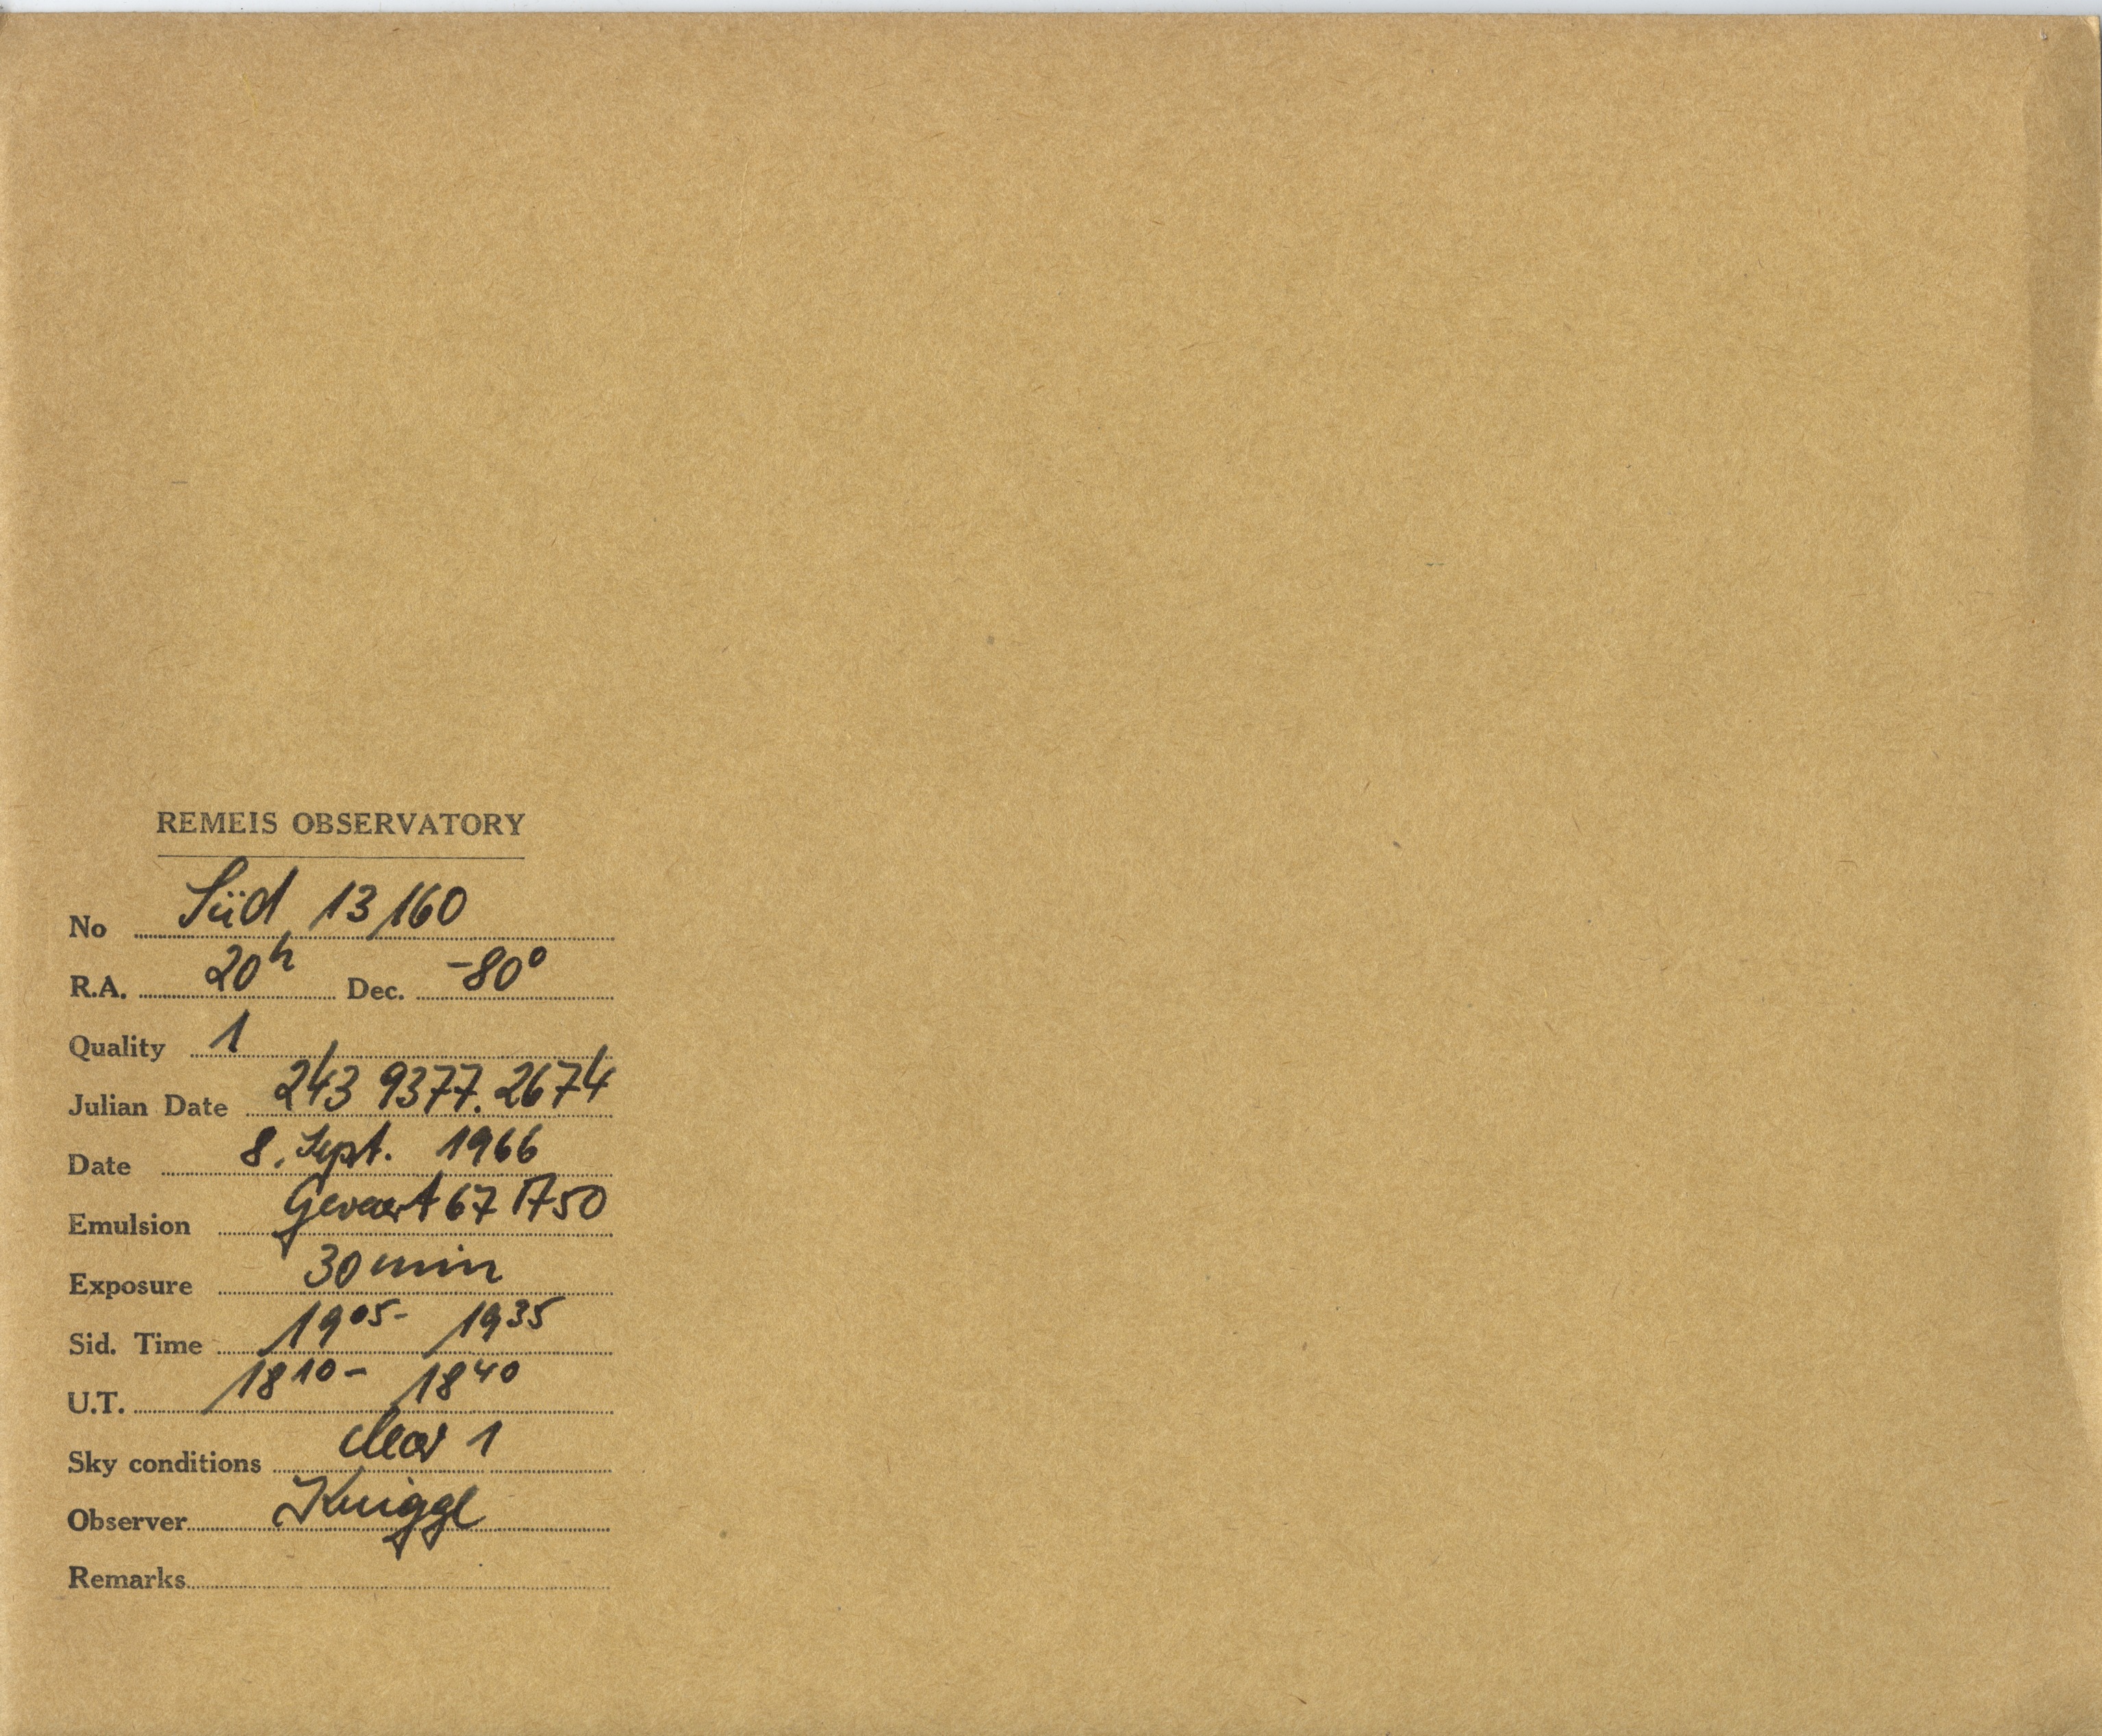 REMEIS OBSERVATORY
No Süd 13/160
R.A. 20h Dec. -80°
Quality 1
Julian Date 243 9377.2674
Date 8. Sept. 1966
Emulsion Gevaert 67 A50
Exposure 30 min
Sid. Time 19 05 - 19 35
U.T. 18 10 - 18 40
Sky conditions clear 1
Observer Kniggl
Remarks